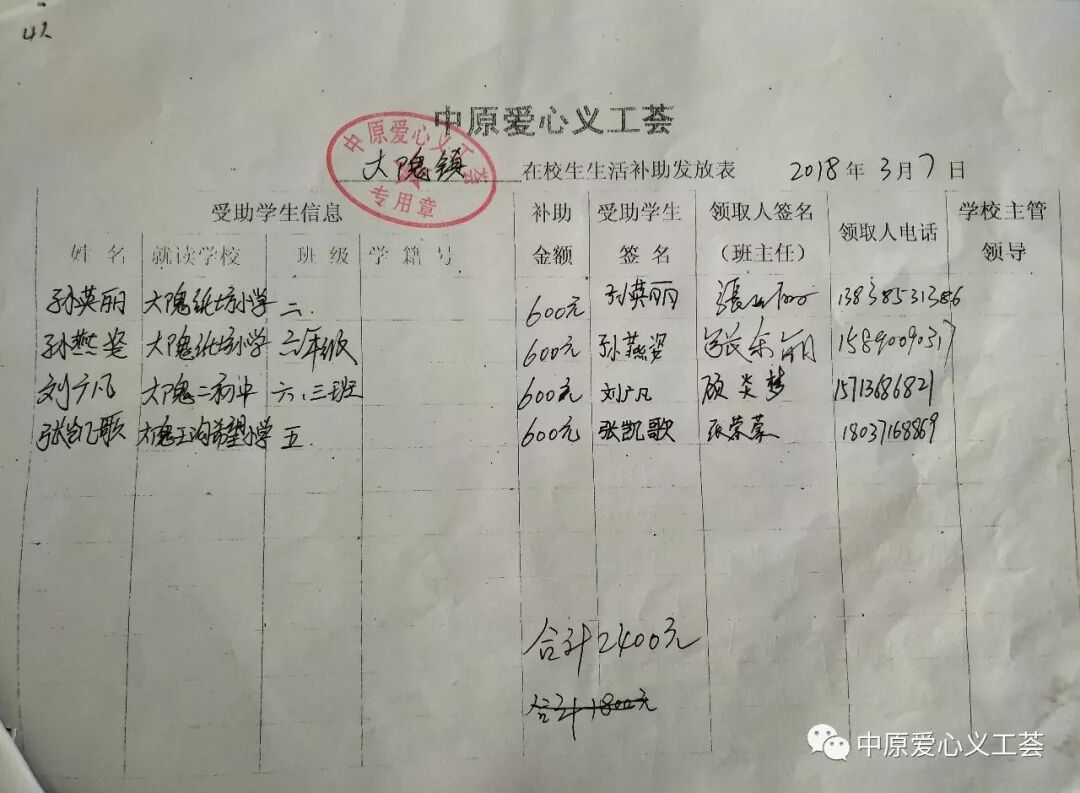 4人
中原爱心义工荟
中原爱心义工荟
专用章
大隗镇 在校生生活补助发放表 2018年3月7日
受助学生信息 补助金额 受助学生签名 领取人签名（班主任） 领取人电话 学校主管领导
姓名 就读学校 班级 学籍号
孙英丽 大隗纸坊小学 二. 600元 孙英丽 13838531386
孙燕姿 大隗纸坊小学 六年级 600元 孙燕姿 15890090317
刘广凡 大隗二初中 六.三班 600元 刘广凡 顾炎梦 15713686821
张凯歌 大隗王沟希望小学 五. 600元 张凯歌 张荣蒙 18037168869
合计2400元
合计1800元
中原爱心义工荟